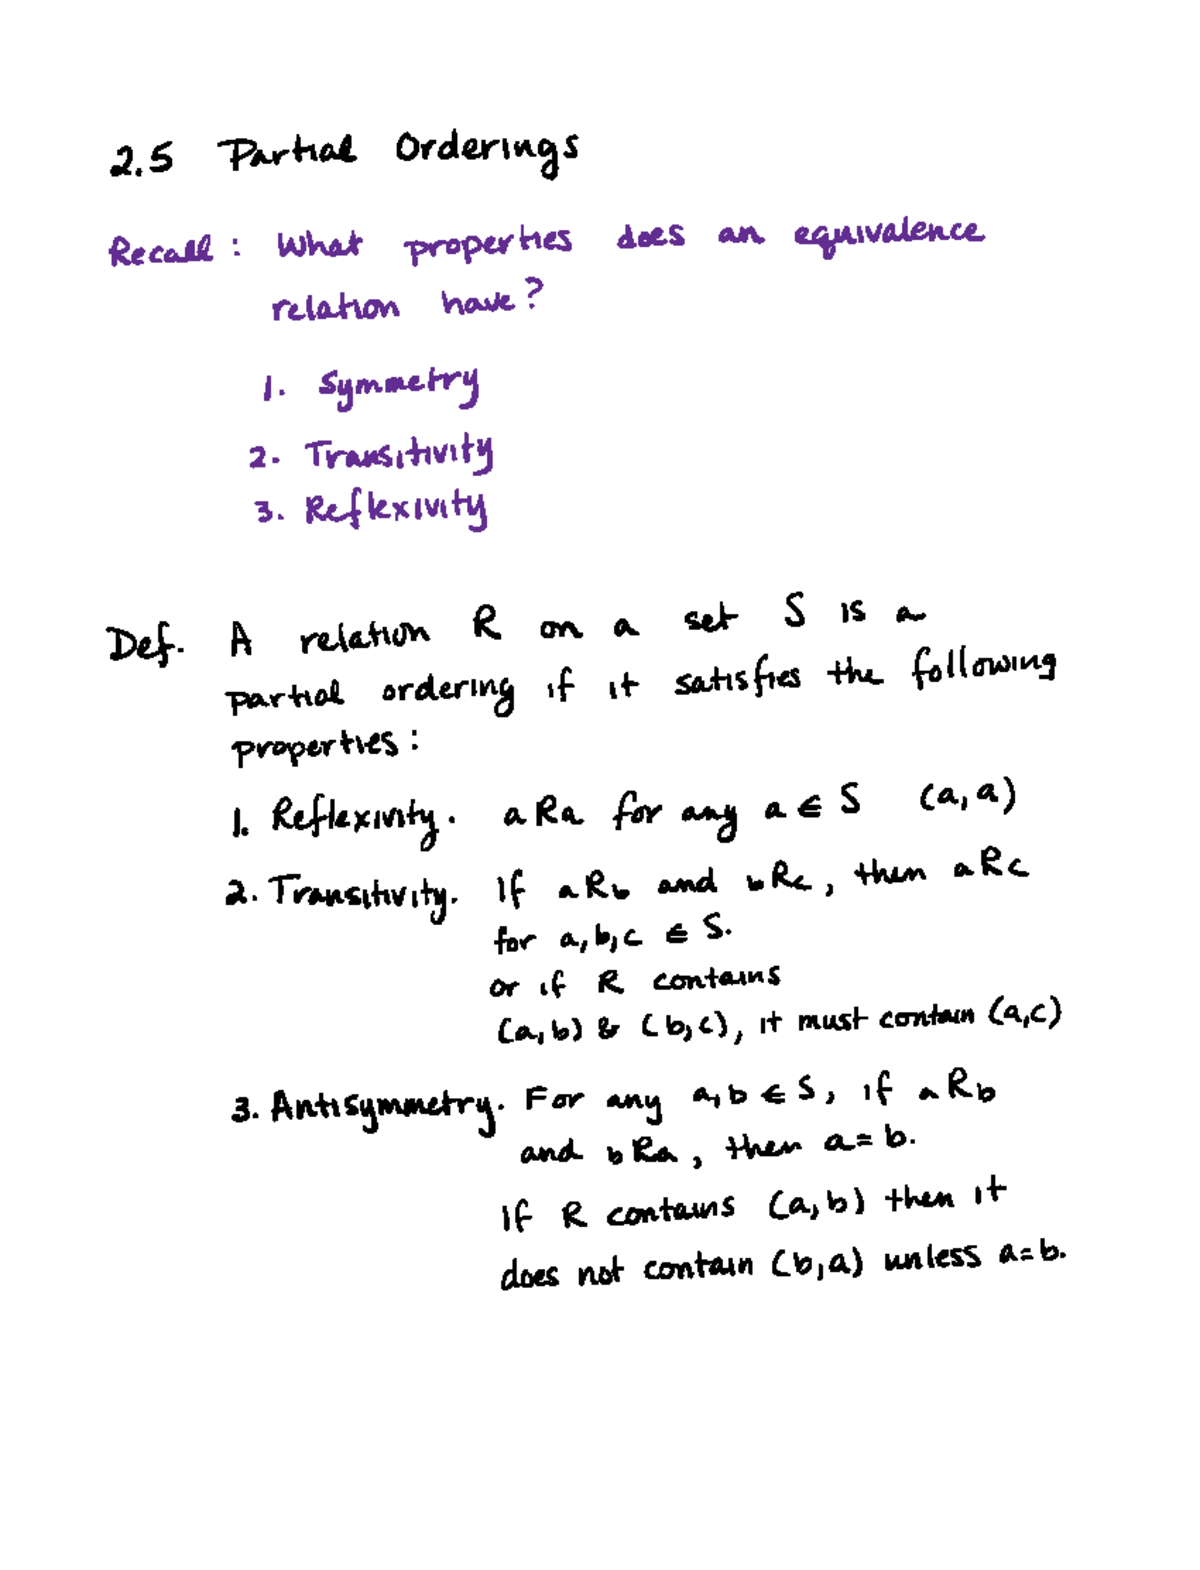 2.5 Partial Orderings
Recall: What properties does an equivalence
relation have?
1. Symmetry
2. Transitivity
3. Reflexivity
Def. A relation R on a set S is a
partial ordering if it satisfies the following
properties:
1. Reflexivity. aRa for any a ∈ S (a, a)
2. Transitivity. If aRb and bRc, then aRc
for a, b, c ∈ S.
or if R contains
(a, b) & (b, c), it must contain (a, c)
3. Antisymmetry. For any a, b ∈ S, if aRb
and bRa, then a = b.
If R contains (a, b) then it
does not contain (b, a) unless a = b.